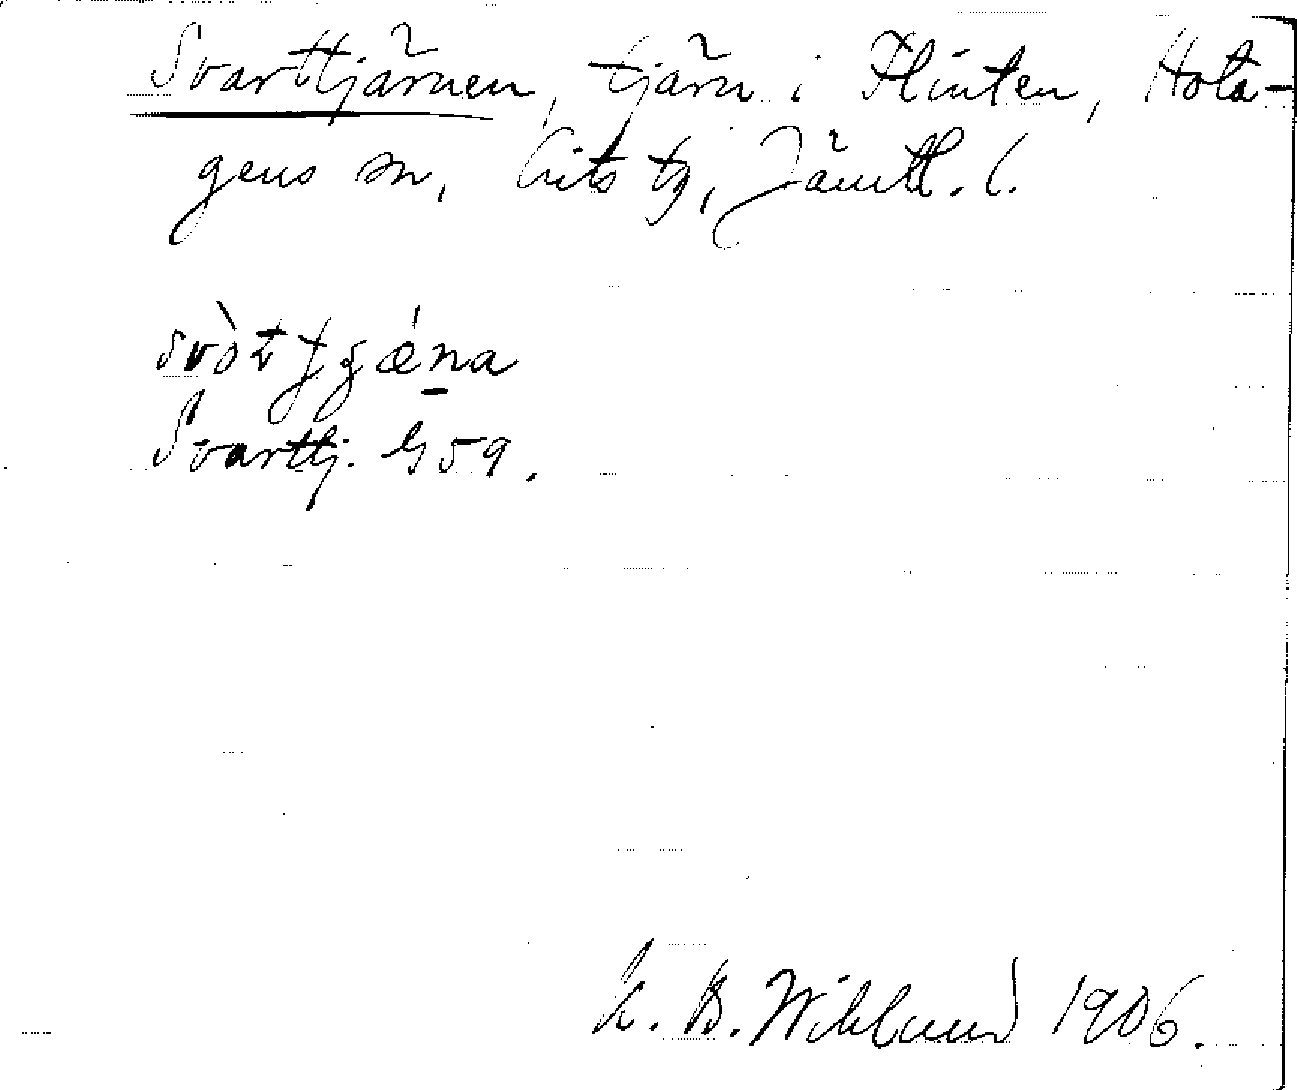 Svarttjärnen, tjärn i Flinten, Hota-
gens sn, Lits tg, Jämtl. l.
svòt tʒǽna
Svarttj. G 59.
K. B. Wiklund 1906.